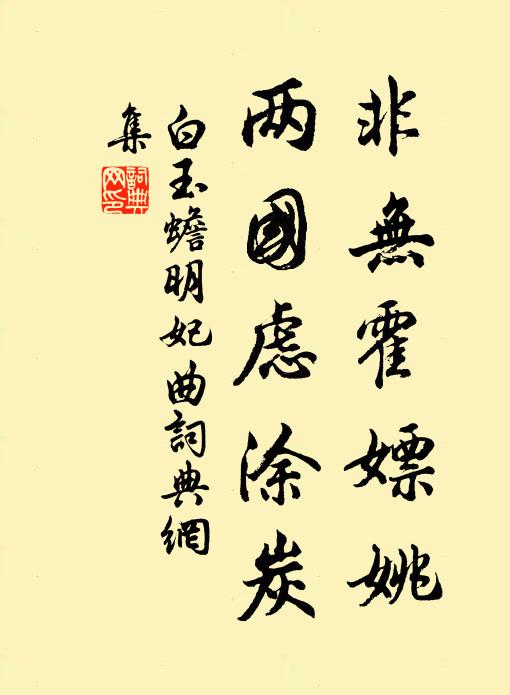 非無霍嫖姚
两國慮涂炭
白玉蟾明妃曲詞典網
集
詞典网印